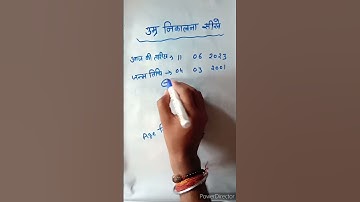 उम्र निकालना सीखें
आज की तारीख → 11 06 2023
जन्म तिथि → 04 03 2001
Age
PowerDirector